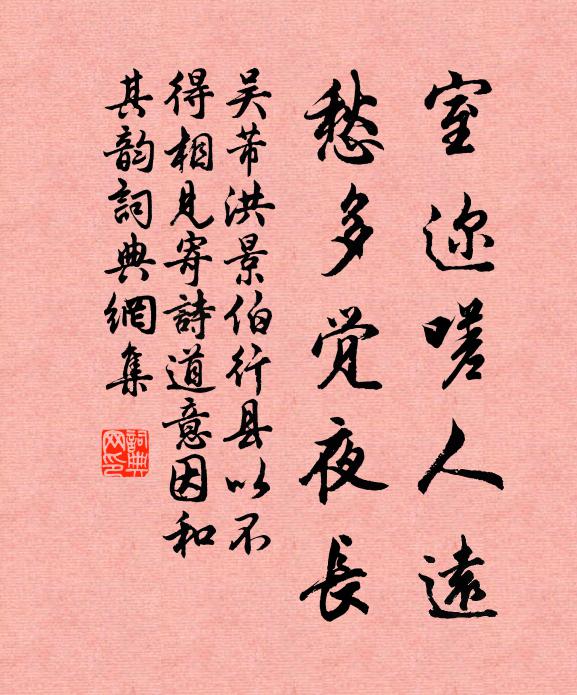 室迩嗟人遠
愁多觉夜長
吴芾洪景伯行县以不
得相見寄詩道意因和
其韵詞典網集
詞典
网印